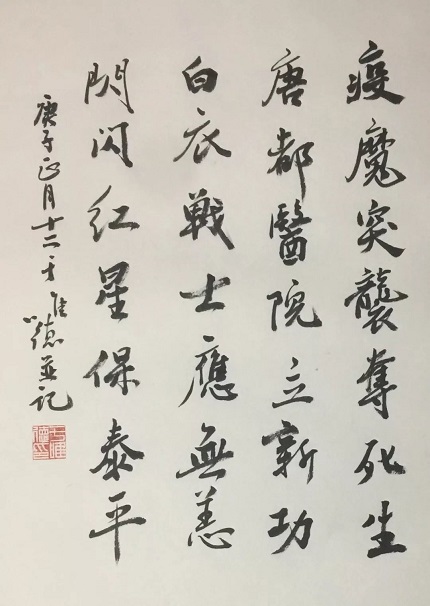 疫魔突襲奪死生
唐都醫院立新功
白衣戰士應無恙
閃闪红星保泰平
庚子正月十二于維德並記